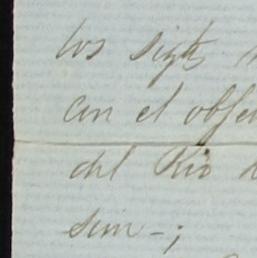 los sigts
con el obje
del Rio d
sim-;